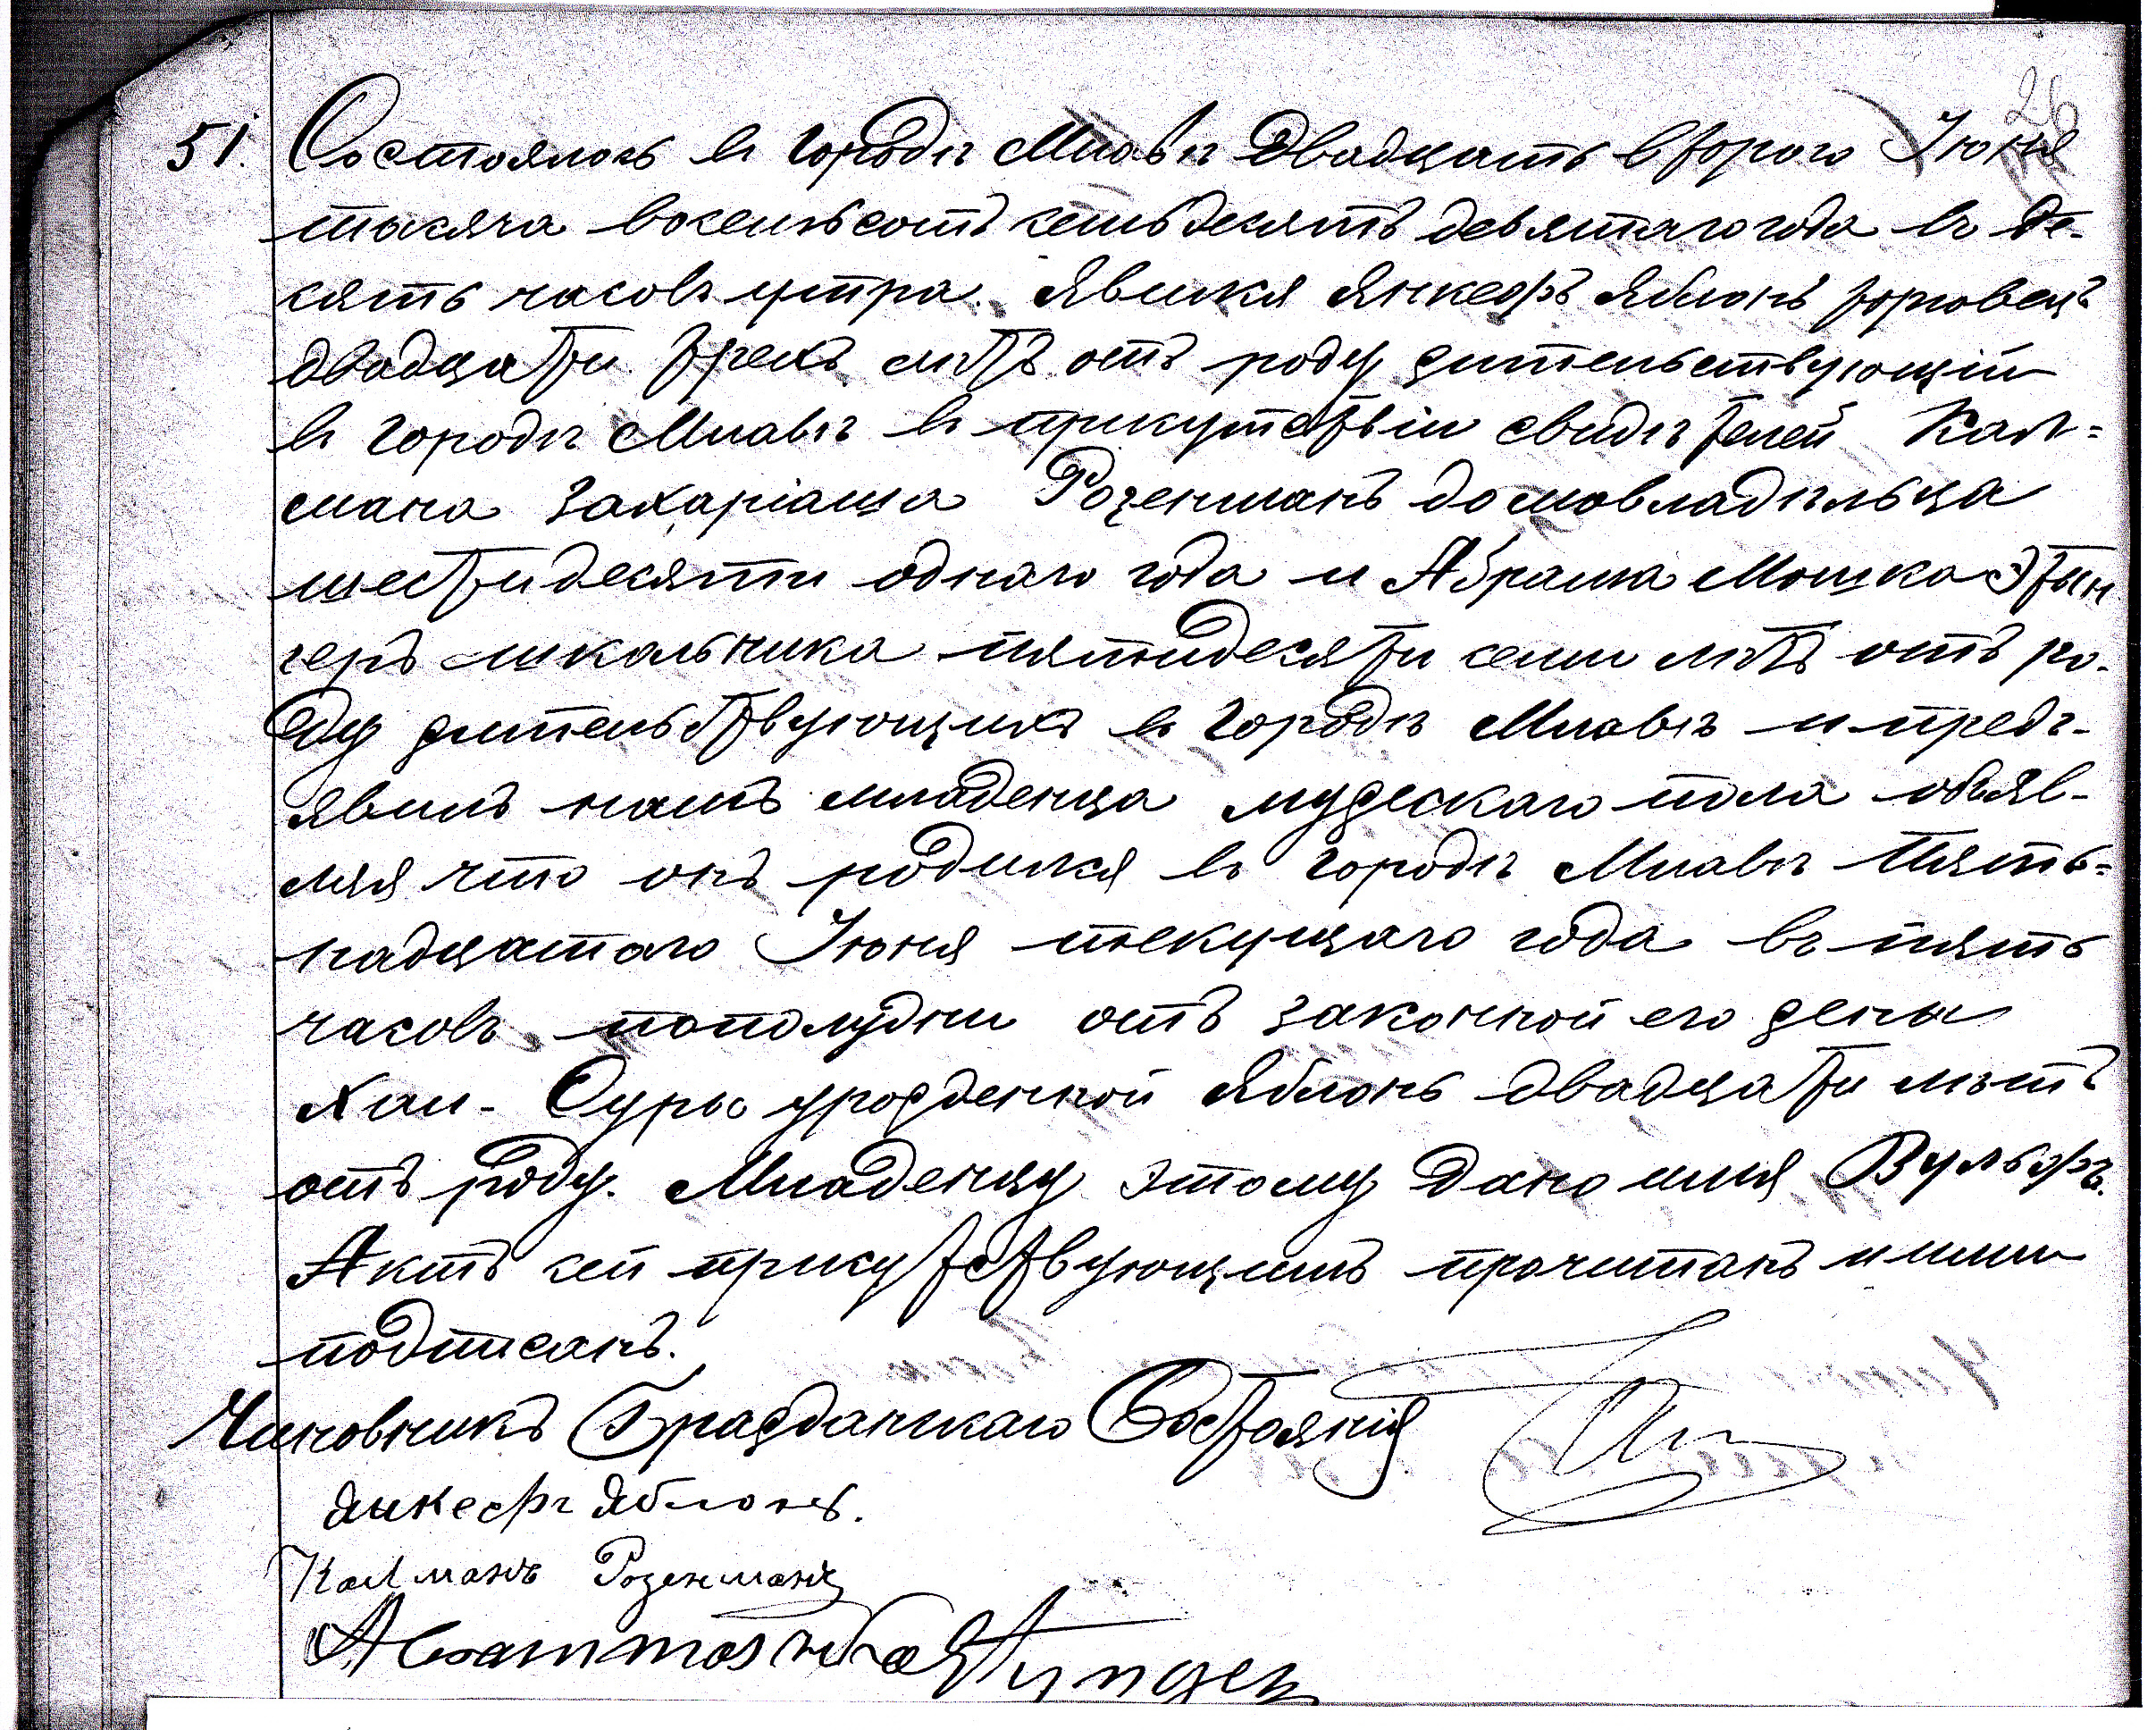 26
51. Состоялось въ городѣ Млавѣ двадцать второго Іюня
тысяча восемьсотъ семьдесятъ девятаго года въ де-
сять часовъ утра. Явился Янкефъ Яблонь торговецъ
двадцати трехъ лѣтъ отъ роду жительствующій
въ городѣ Млавѣ въ присутствіи свидѣтелей Кал=
мана Захаріаша Розенманъ домовладѣльца
шестидесяти однаго года и Абрама Мошка Этын
геръ школьника пятидесяти семи лѣтъ отъ ро-
ду жительствующихъ въ городѣ Млавѣ и предъ-
явилъ намъ младенца мужескаго пола объяв-
ляя что онъ родился въ городѣ Млавѣ Пять=
надцатаго Іюня текущаго года въ пять
часовъ пополудни отъ законной его жены
Хаи-Суры урожденной Яблонь двадцати лѣтъ
отъ роду. Младенцу этому дано имя Вульфъ.
Актъ сей присутствующимъ прочитанъ и ими
подписанъ.
Чиновникъ Гражданскаго Состоянія
Янкефъ Яблонь.
Калманъ Розенманъ